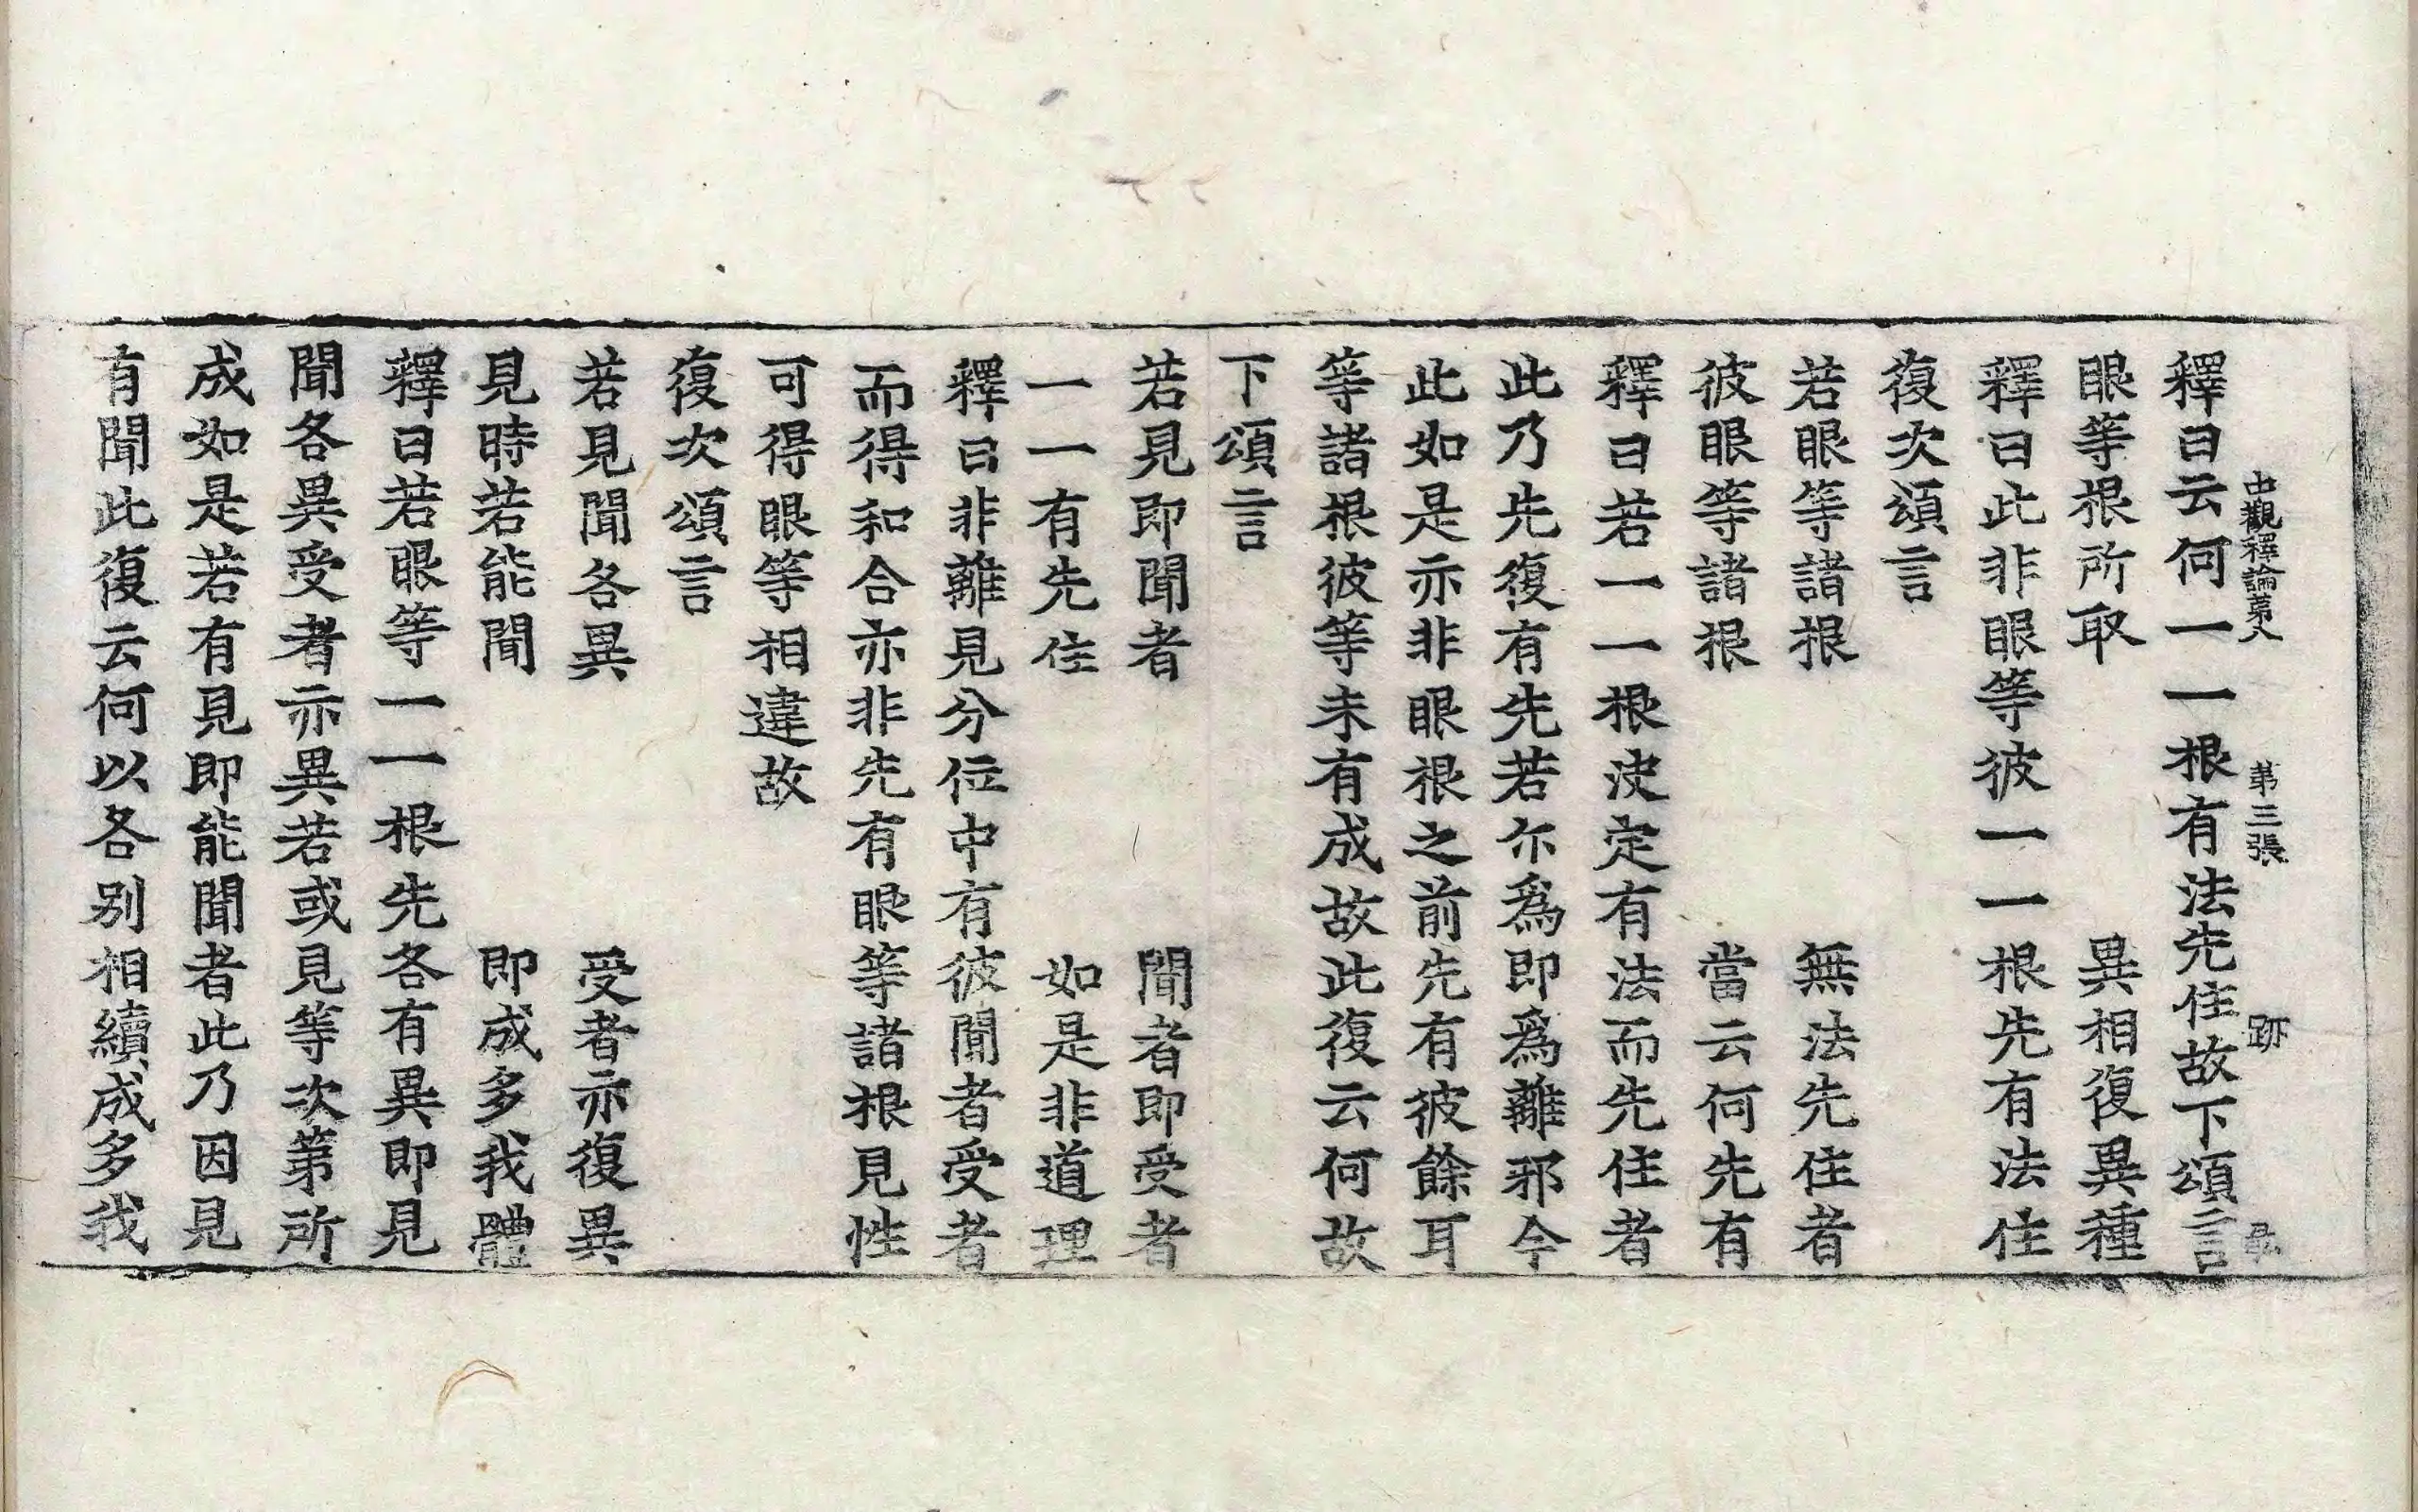 中觀釋論第八 第三張 跡
釋曰云何一一根有法先住故下頌言
眼等根所取 異相復異種
釋曰此非眼等彼一一根先有法住
復次頌言
若眼等諸根 無法先住者
彼眼等諸根 當云何先有
釋曰若一一根決定有法而先住者
此乃先復有先若尒爲即爲離邪今
此如是亦非眼根之前先有彼餘耳
等諸根彼等未有成故此復云何故
下頌言
若見即聞者 聞者即受者
一一有先住 如是非道理
釋曰非離見分位中有彼聞者受者
而得和合亦非先有眼等諸根見性
可得眼等相違故
復次頌言
若見聞各異 受者亦復異
見時若能聞 即成多我體
釋曰若眼等一一根先各有異即見
聞各異受者亦異若或見等次第所
成如是若有見即能聞者此乃因見
有聞此復云何以各別相續成多我